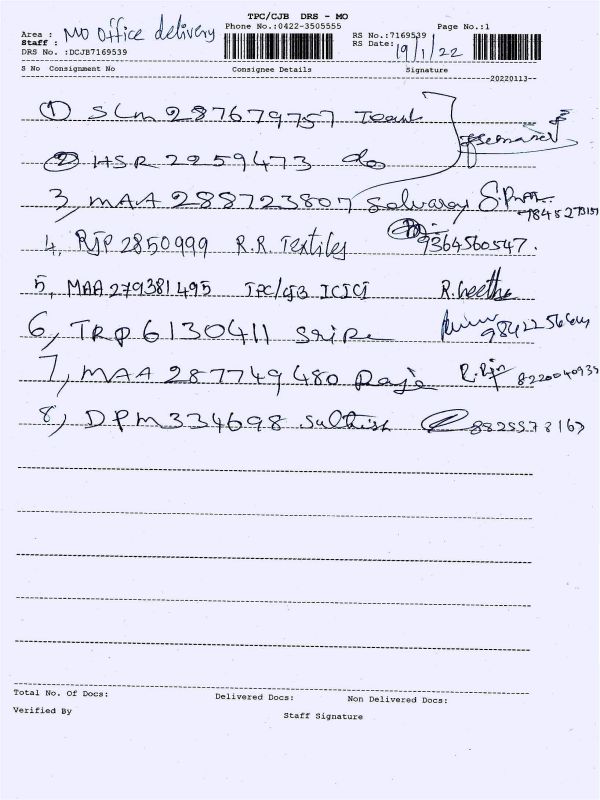 TPC/CJB DRS - MO
Phone No.:0422-3505555 Page No.:1
Area : MO Office delivery RS No.:7169539
Staff : RS Date: 19/1/22
DRS No. :DCJB7169539
S No Consignment No Consignee Details Signature
20220113
① SLM 287679757
② HSR 2259473 do
3, MAA 288723807 Selvaraj
4, RJP 2850999 R.R. Textiles 9364560547.
5, MAA 279381495 TPC/CJB ICICI R. Geetha
6, TRP 6130411 Sripe
7, MAA 287749480 Raja 8220040935
8, DPM 334698 Sathish
Total No. Of Docs: Delivered Docs: Non Delivered Docs:
Verified By Staff Signature